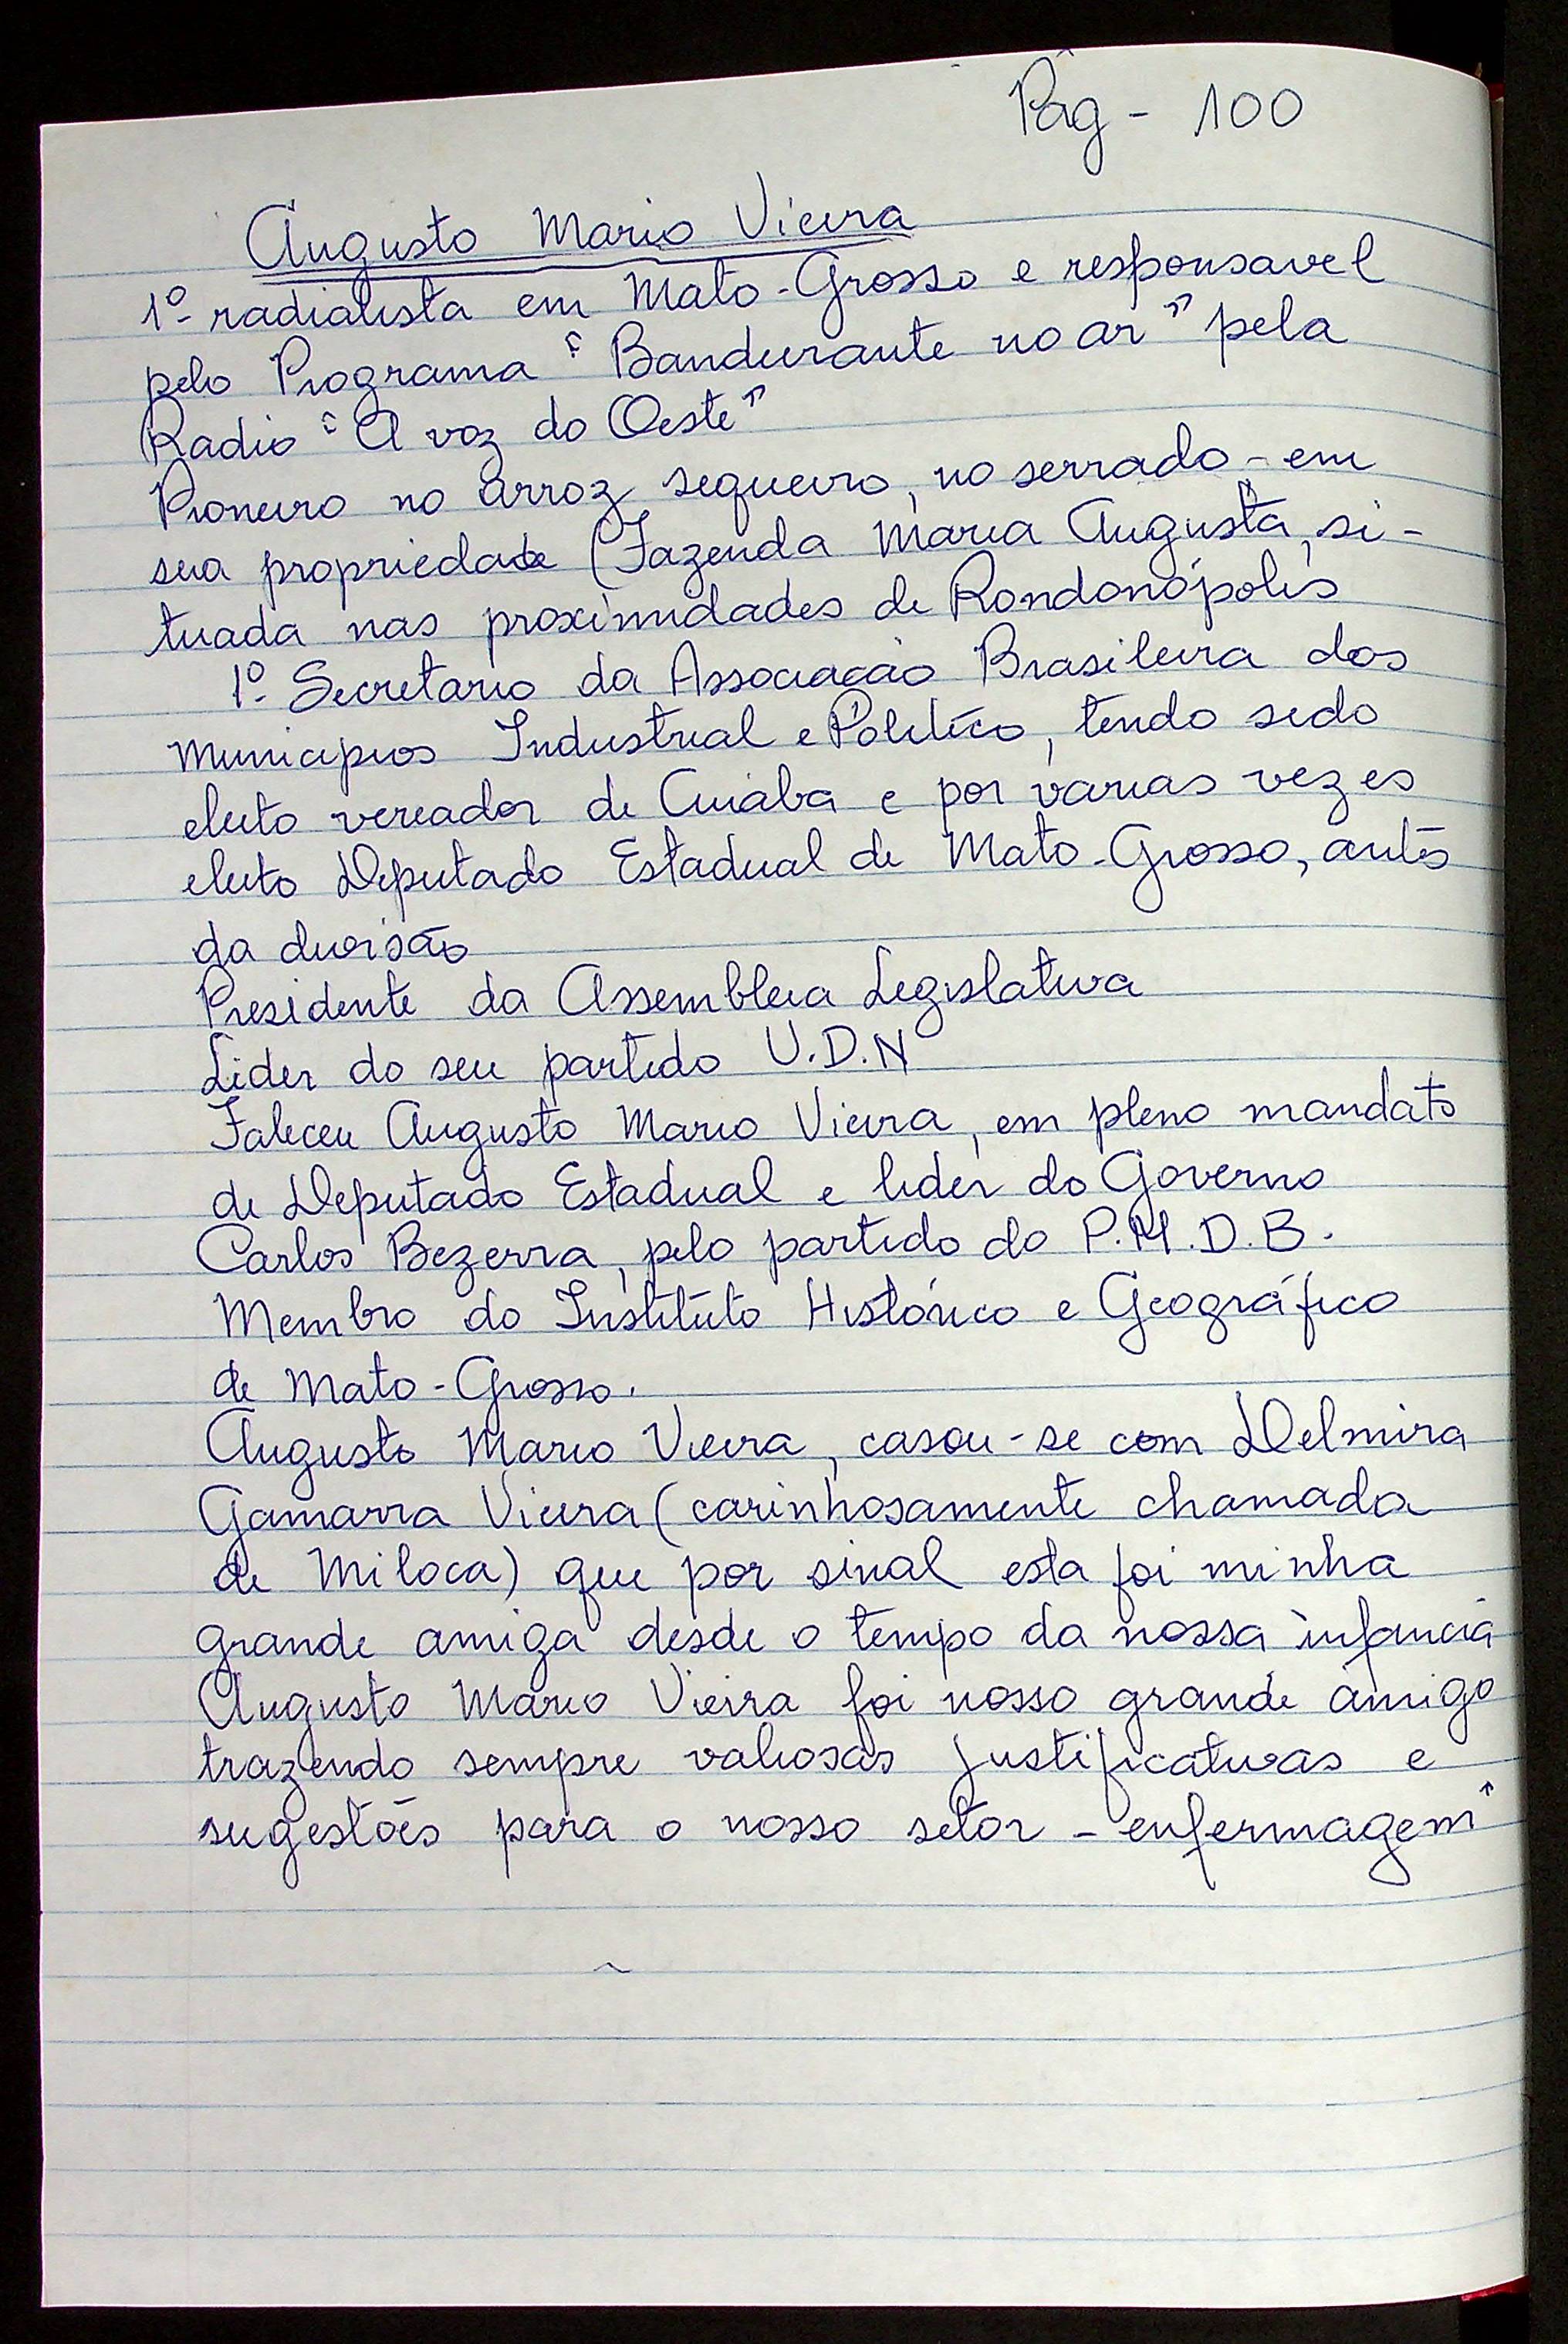 Pág - 100
Augusto Mario Vieira
1º radialista em Mato-Grosso e responsavel
pelo Programa "Bandeirante no ar" pela
Radio "A voz do Oeste"
Pioneiro no arroz sequeiro, no serrado - em
sua propriedade (Fazenda Maria Augusta, si-
tuada nas proximidades de Rondonópolis
1º Secretario da Associação Brasileira dos
Municipios Industrial e Politico, tendo sido
eleito vereador de Cuiaba e por varias vezes
eleito Deputado Estadual de Mato-Grosso, antes
da divisão
Presidente da Assembleia Legislativa
Lider do seu partido U.D.N
Faleceu Augusto Mario Vieira, em pleno mandato
de Deputado Estadual e lider do Governo
Carlos Bezerra, pelo partido do P.M.D.B.
Membro do Instituto Histórico e Geográfico
de Mato-Grosso.
Augusto Mario Vieira, casou-se com Delmira
Gamarra Vieira (carinhosamente chamada
de Miloca) que por sinal esta foi minha
grande amiga desde o tempo da nossa infancia
Augusto Mario Vieira foi nosso grande amigo
trazendo sempre valiosas justificativas e
sugestões para o nosso setor - enfermagem"